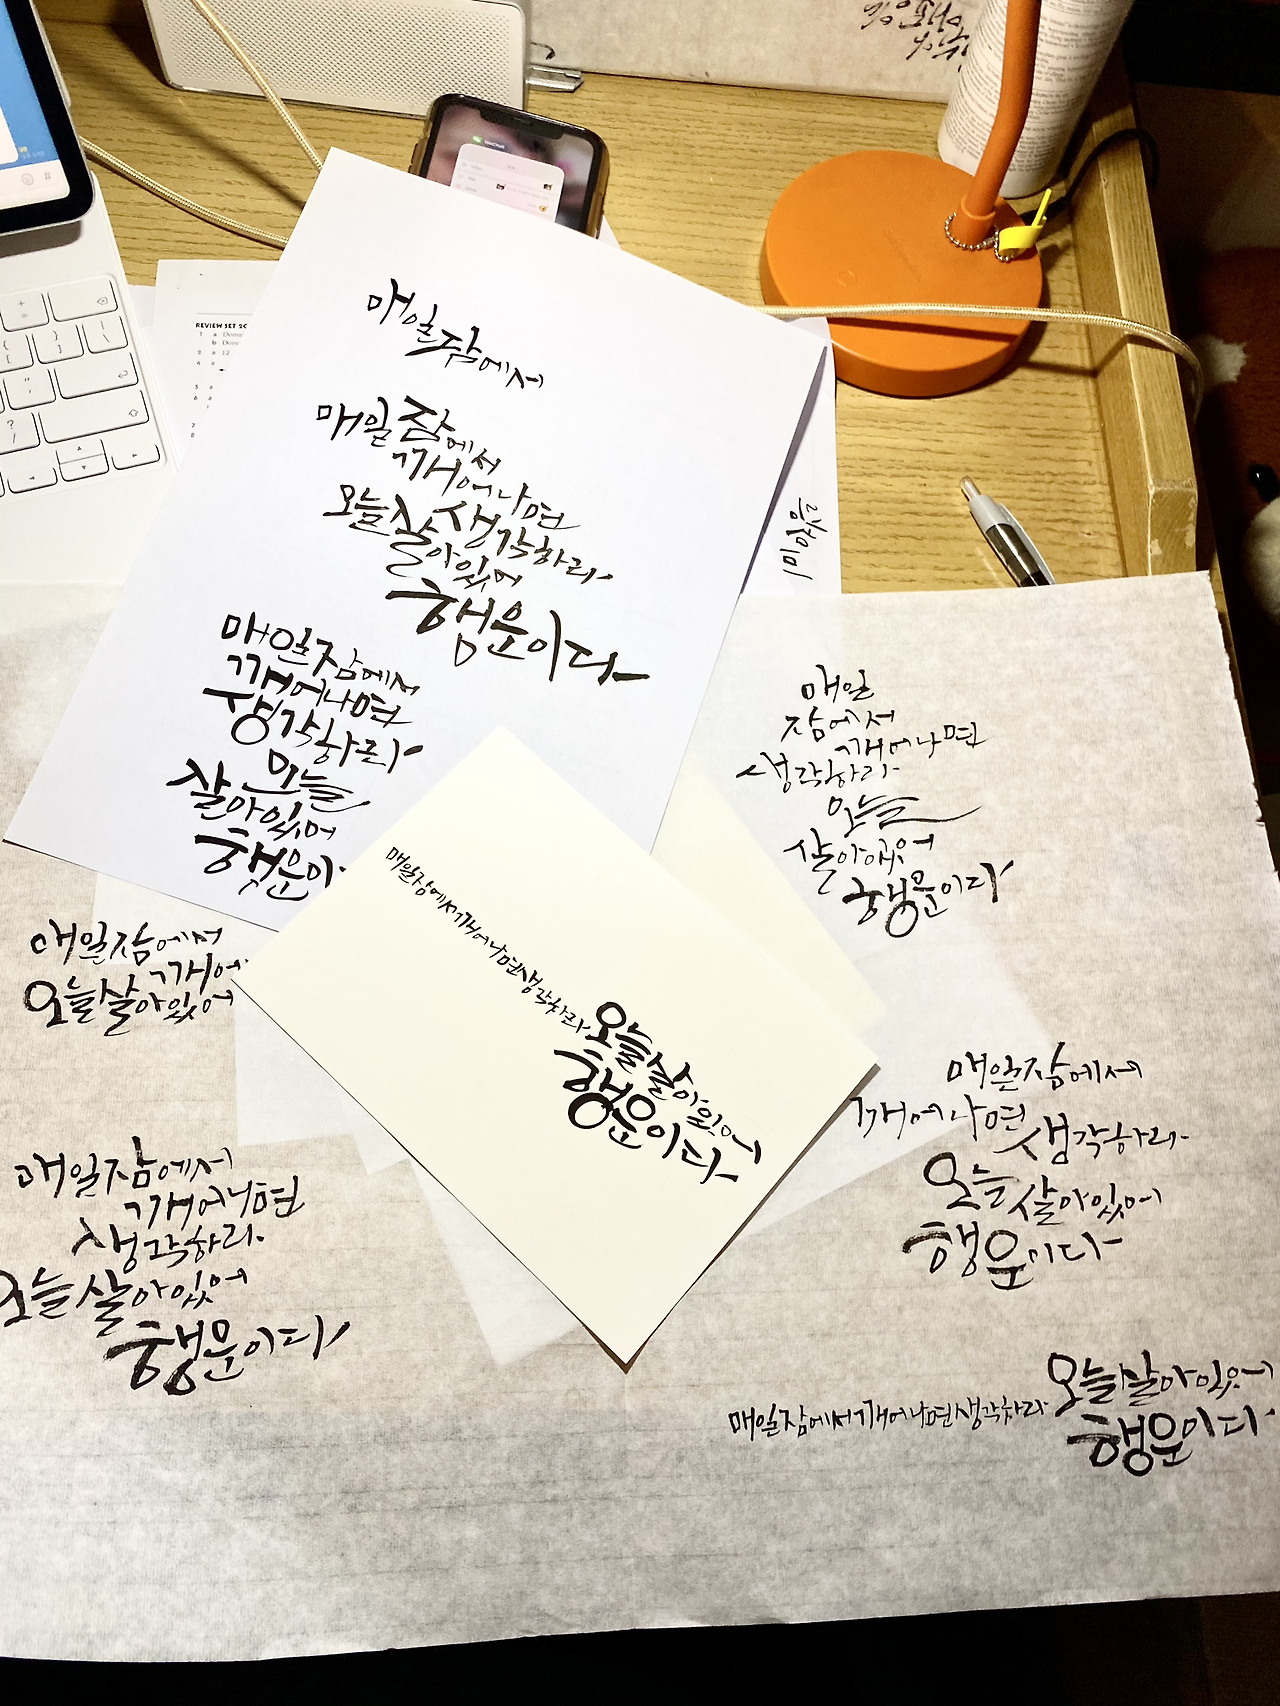 매일잠에서
매일잠에서
깨어나면
오늘 생각하라
살아있어
행운이다
매일잠에서
깨어나면
생각하라
오늘
살아있어
행운이
REVIEW SET 20
매일
잠에서
깨어나면
생각하라
오늘
살아있어
행운이다
매일잠에서깨어나면생각하라
오늘살아있어
행운이다
매일잠에서
깨어
오늘살아있어
매일잠에서
깨어나면
생각하라
오늘살아있어
행운이다
매일잠에서
깨어나면 생각하라
오늘 살아있어
행운이다
매일잠에서깨어나면생각하라
오늘살아있어
행운이다